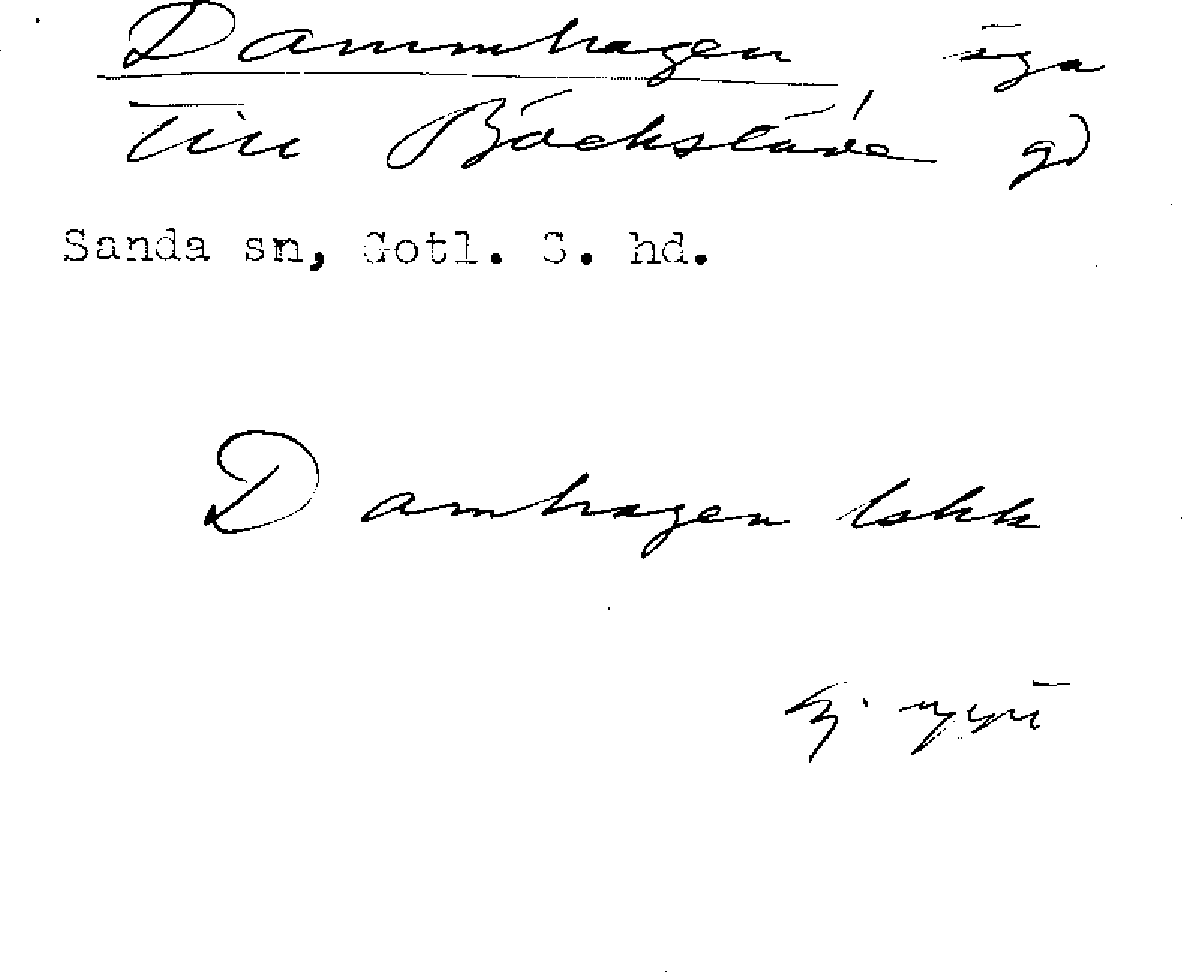 Dammhagen äga
Till Bäckstäde gd
Sanda sn, Gotl. S. hd.
Damhagen lskk
Ej